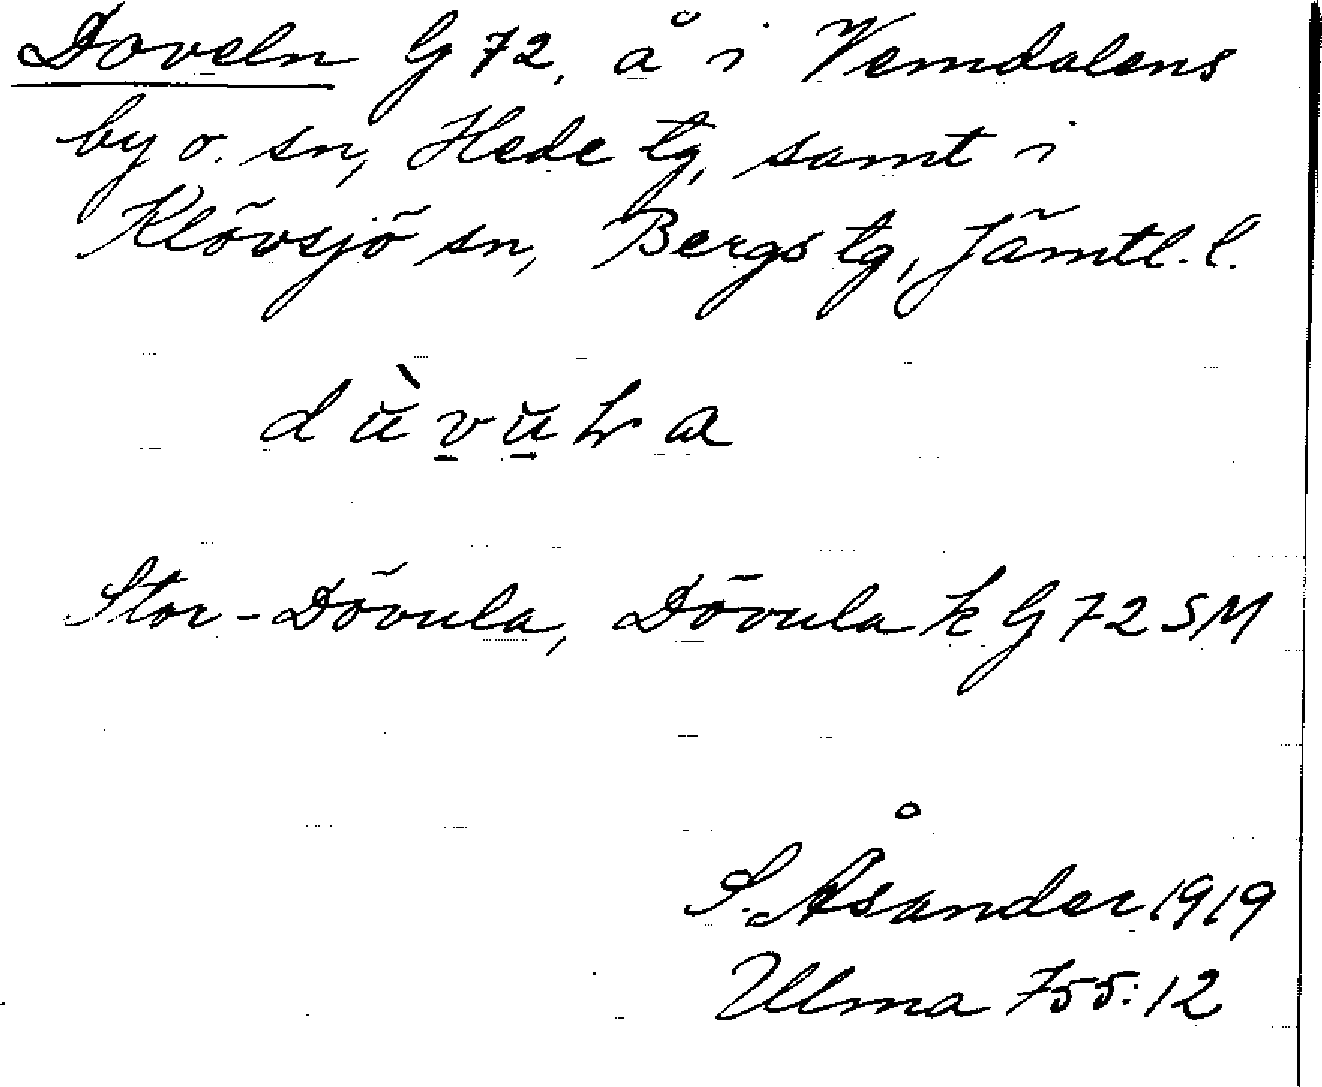 Doveln G 72, å i Vemdalens
by o. sn, Hede tg, samt i
Klövsjö sn, Bergs tg, Jämtl. l.
Stor-Dövula, Dövula k G 72 SM
S. Åsander 1919
Ulma 755:12